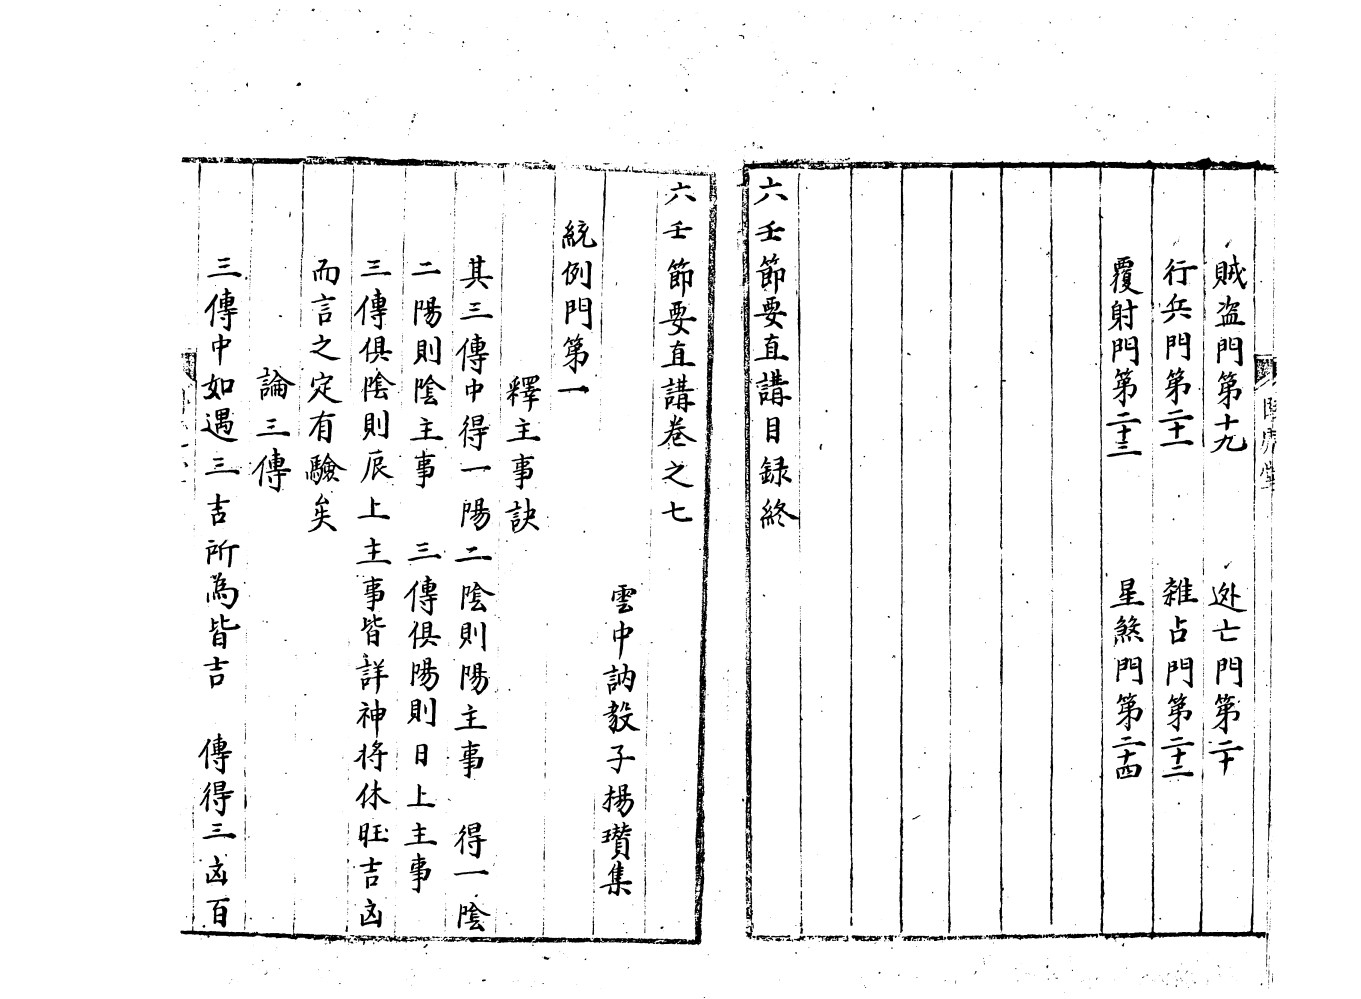 賊盗門第十九 迯亡門第二十
行兵門第二十一 雜占門第二十二
覆射門第二十三 星煞門第二十四
六壬節要直講目録終
六壬節要直講卷之七
雲中訥敎子揚瓚集
統例門第一
釋主事訣
其三傳中得一陽二陰則陽主事 得一陰
二陽則陰主事 三傳俱陽則日上主事
三傳俱陰則辰上主事皆詳神将休旺吉凶
而言之定有驗矣
論三傳
三傳中如遇三吉所為皆吉 傳得三凶百